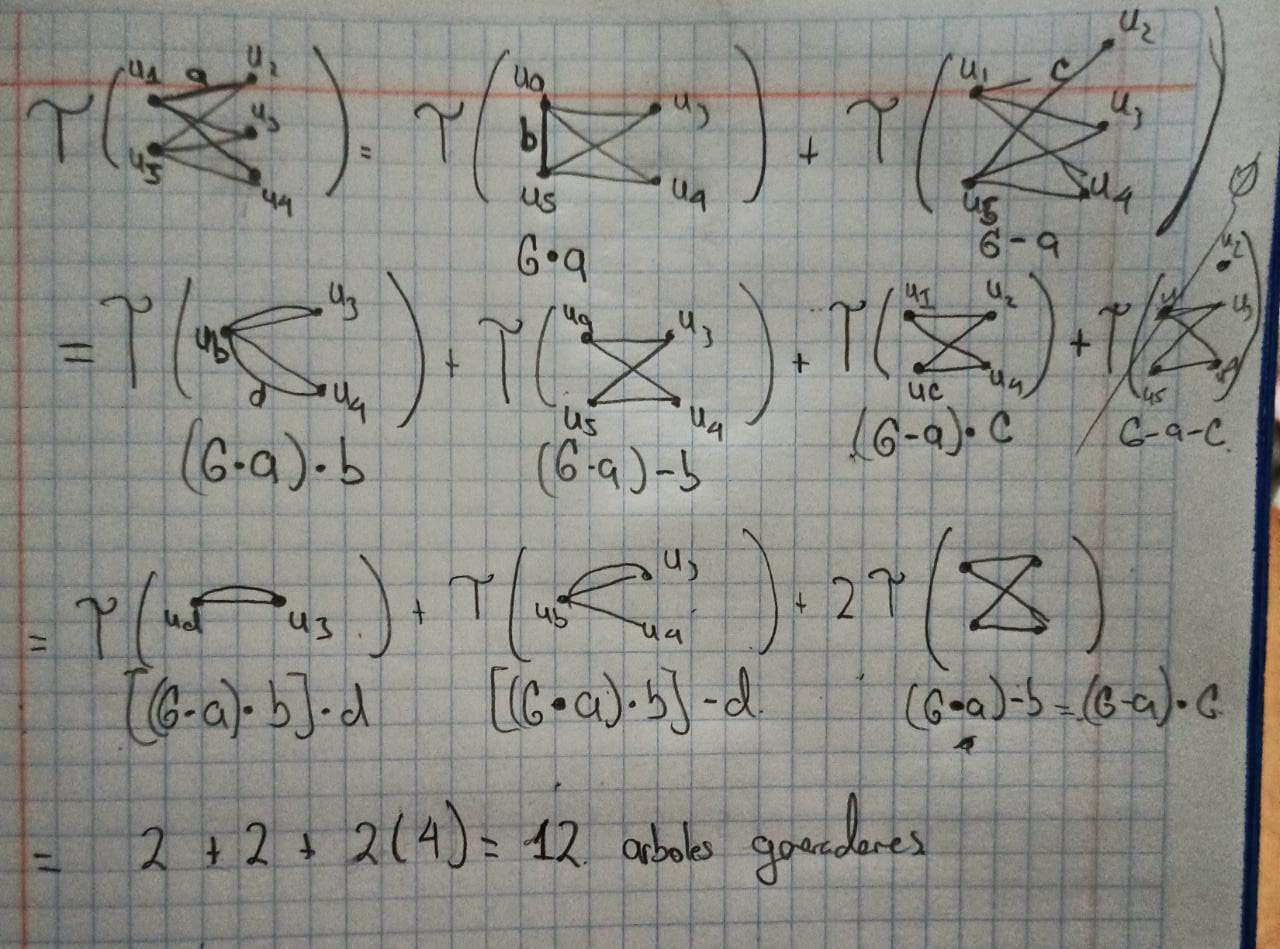 τ( u1 a u2 u5 u3 u4 ) = τ( ua u3 b u5 u4 ) + τ( u1 c u2 u3 u5 u4 )
G•a G-a ∅
= τ( ub u3 d u4 ) + τ( ua u3 u5 u4 ) + τ( u1 u2 uc u4 ) + τ( u2 u1 u3 u5 )
(G•a)•b (G•a)-b (G-a)•c G-a-c
= τ( ud u3 ) + τ( ub u3 u4 ) + 2τ( )
[(G•a)•b]•d [(G•a)•b]-d (G•a)-b=(G-a)•c
= 2 + 2 + 2(4) = 12 arboles